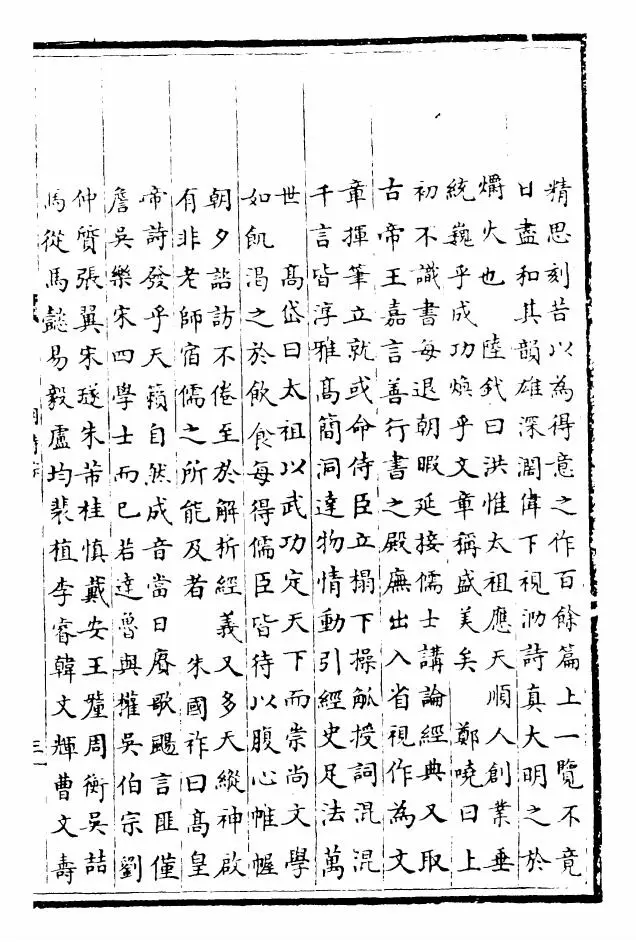 精思刻苦以為得意之作百餘篇上一覽不竟
日盡和其韻雄深濶偉下視泐詩真大明之於
爝火也　陸釴曰洪惟太祖應天順人創業垂
統巍乎成功煥乎文章稱盛美矣　鄭曉曰上
初不識書每退朝暇延接儒士講論經典又取
古帝王嘉言善行書之殿廡出入省視作為文
章揮筆立就或命侍臣立榻下操觚授詞混混
千言皆淳雅髙簡洞達物情動引經史足法萬
世　髙岱曰太祖以武功定天下而崇尚文學
如飢渴之於飲食每得儒臣皆待以腹心帷幄
朝夕諮訪不倦至於解析經義又多天縱神啟
有非老師宿儒之所能及者　朱國祚曰髙皇
帝詩發乎天籟自然成音當日賡歌颺言匪僅
詹吳樂宋四學士而已若達魯與權吳伯宗劉
仲質張翼宋璲朱芾桂慎戴安王釐周衡吳喆
馬從馬懿易毅盧均裴植李睿韓文輝曹文壽